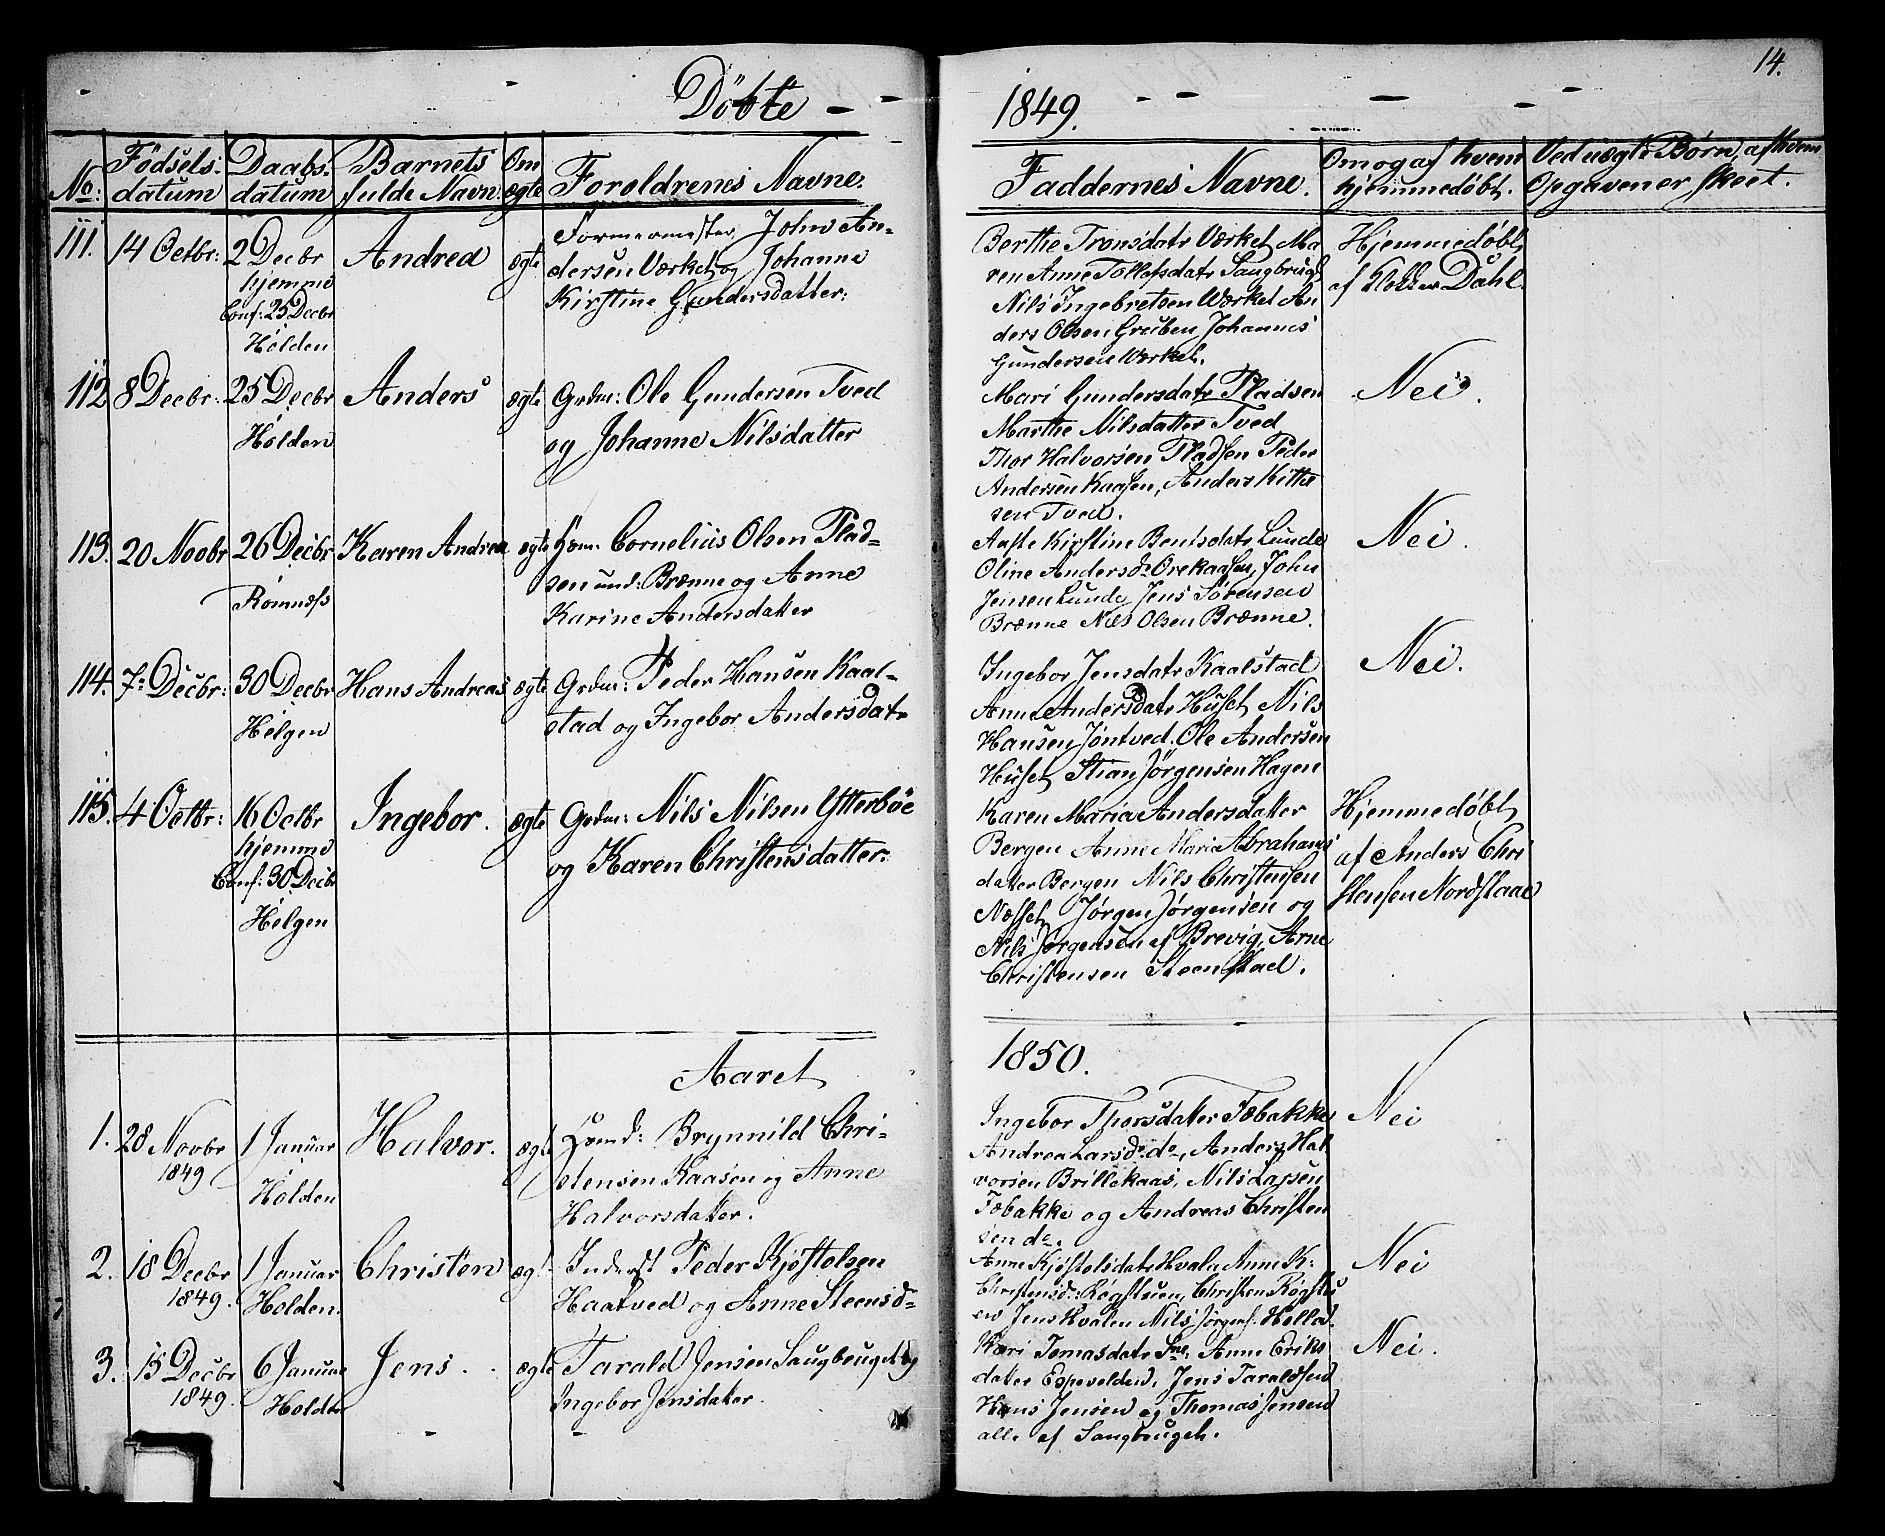 14.
Döbte
1849.
No:
Födsels-
datum
Daabs-
datum
Barnets
fulde Navn
Om
ægte
Foreldrenes Navne.
Faddernes Navne.
Om og af hvem
hjemmedöbt.
Ved uægte Børn, af hvem
Opgaven er skeet.
111.
14 Octbr:
2 Decbr
hjemme
Conf: 25 Decbr
Holden
Andrea
ægte
Formermester, John An-
dersen Værket og Johanne
Kirstine Gundersdatter:
Berthe Tronsdatr Værket Ma-
ren Anne Tollefsdatr Saugbrug
Nils Ingebretsen Værket An
ders Olsen Gruben, Johannes
Gundersen Værket.
Hjemmedøbt
af Dahl.
112
8 Decbr:
25 Decbr
Holden
Anders
ægte
Grdm: Ole Gundersen Tved
og Johanne Nilsdatter
Mari Gundersdatr Pladsen
Marthe Nilsdatter Tved
Thor Halvorsen Pladsen Peder
Andersen Kaasen, Anders Kitti
sen Tved.
Nei.
113.
20 Novbr
26 Decbr
Romnæs
Karen Andrea
ægte
Huusm: Cornelius Olsen Plad-
sen und: Brænne og Anne
Karine Andersdatter
Aaste Kirstine Bentsdatr Lunde
Oline Andersd: Orekaasen, John
Jensen Lunde, Jens Sørensen
Brænne Nils Olsen Brænne.
Nei.
114.
7: Decbr:
30 Decbr
Helgen
Hans Andreas
ægte
Grdm: Peder Hansen Kaal-
stad og Ingebor Andersdatr
Ingebor Jensdatr Kaalstad
Anne Andersdatr Huset Nils
Hansen Jøntved. Ole Andersen
Huset Stian Jørgensen Hagen
Nei.
115.
4 Octbr:
16 Octbr
hjemme
Conf: 30 Decbr
Helgen
Ingebor.
ægte
Grdm: Nils Nilsen Ytterböe
og Karen Christensdatter.
Karen Maria Andersdatter
Bergen Anne Maria Abrahams
datter Bergen Nils Christensen
Næset, Jørgen Jørgensen og
Nils Jørgensen af Brevig, Arne
Christensen Steenstad.
Hjemmedøbt
af Anders Chri
stensen Nordstaae
Aaret
1850.
1.
28 Novbr
1849
1 Januar
Holden
Halvor.
ægte
Brynnild Chri-
stensen Kaasen og Anne
Halvorsdatter.
Ingebor Thorsdatter Tæbakke
Andrea Larsd: do, Anders Hal
vorsen Brillekaas, Nils Larsen
Tæbakke og Andreas Christen
sen do.
Nei
2.
18 Decbr
1849.
1 Januar
Holden.
Christen
ægte
Inderst Peder Kjøstolsen
Haatved og Anne Steensd-
Anne Kjøstolsdatr Hvala Anne K:
Christensd: Røgstuen, Christen Røgstu
en Jens Hvalen Nils Jørgens. Holla.
Nei
3.
15 Decbr
1849.
6 Januar
Holden
Jens.
ægte
Tarald Jensen Saugbruget og
Ingebor Jensdatter.
Kari Tomasdatr Anne Eriks
datter Espevolden, Jens Taraldsen
Hans Jensen og Thomas Jensen
alle af Saugbruget.
Nei.